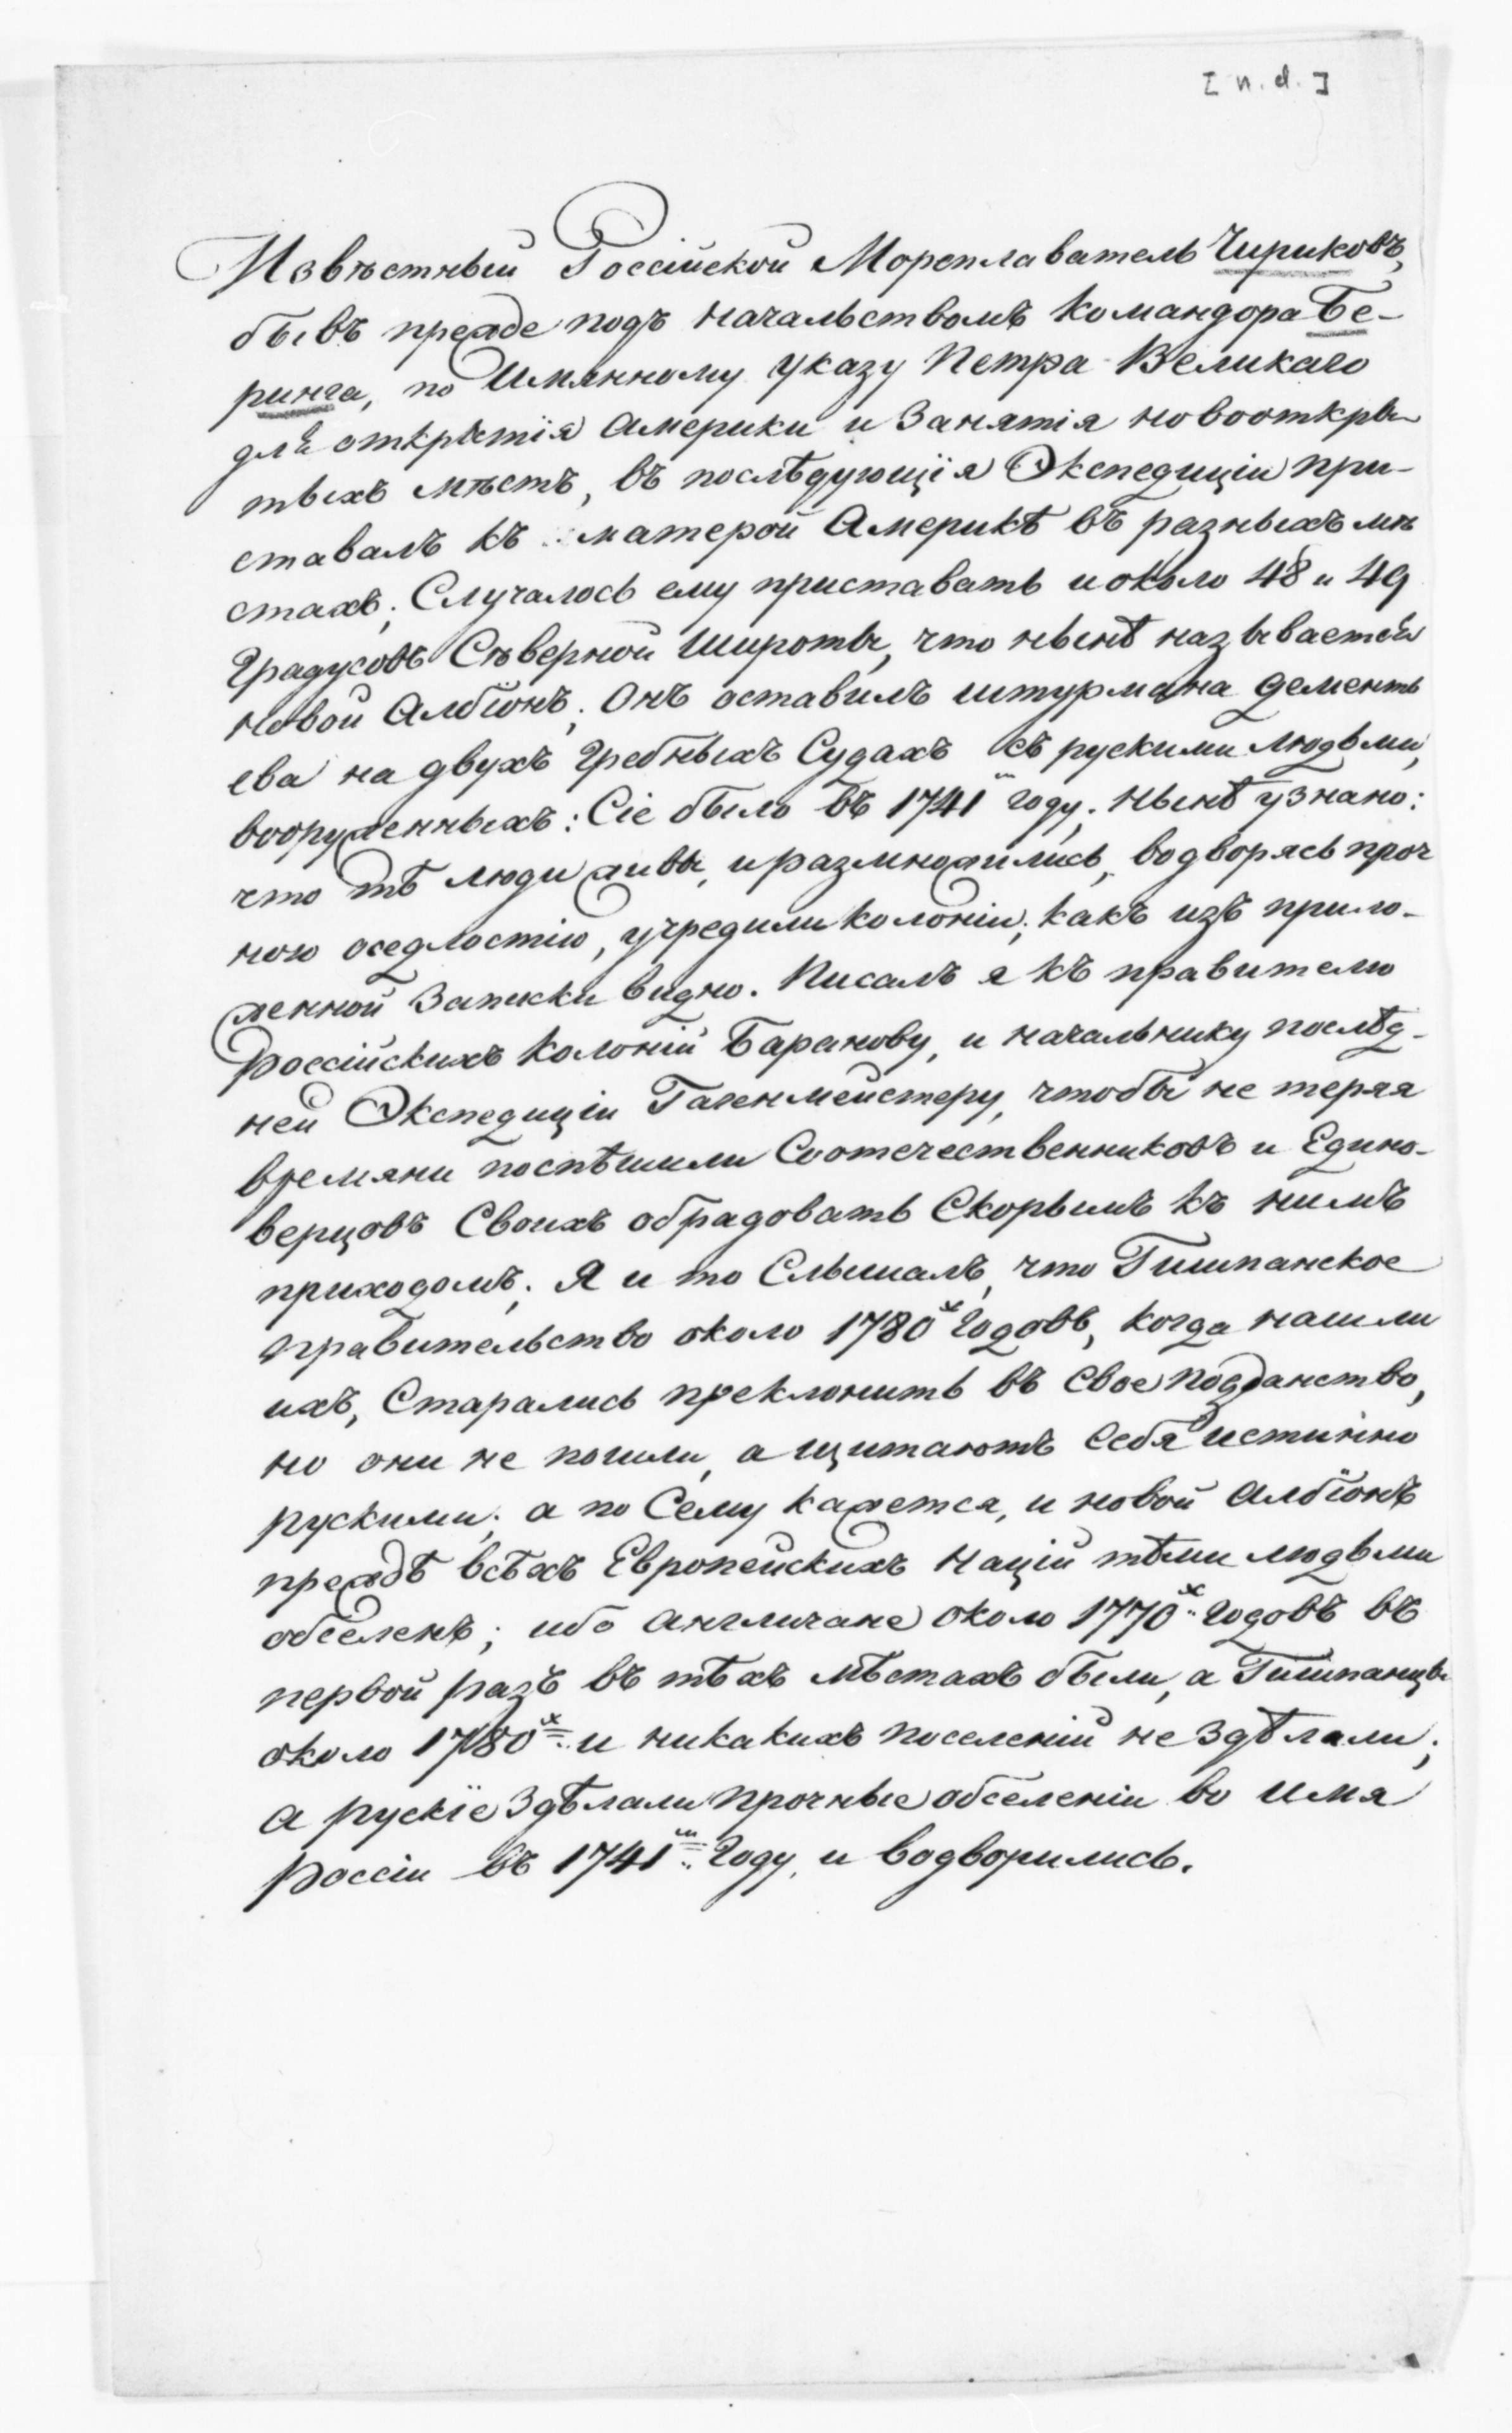 [n.d.]
Извѣстный Россійской Мореплаватель Чириковъ,
бывъ прежде подъ начальствомъ Командора Бе-
ринга, по Имянному Указу Петра Великаго
для открытія Америки и Занятія новооткры-
тыхъ мѣстъ, въ послѣдующія Экспедиціи при-
ставалъ къ матерой Америкѣ въ разныхъ мѣ
стахъ; Случалось ему приставать и около 48 и 49
Градусовъ Сѣверной Широты, что нынѣ называется
новой Албіонъ; Онъ оставилъ штурмана Дементь
ева на двухъ Гребныхъ Судахъ съ рускими Людьми,
вооруженныхъ: Сіе было въ 1741м Году; Нынѣ узнано:
что тѣ люди живы, и размножились, водворясь проч
ною оседлостію, учредили колоніи; какъ изъ прило-
женной Записки видно. Писалъ я къ правителю
Россійскихъ Колоній Баранову, и начальнику послѣд-
ней Экспедиціи Гагенмейстеру, чтобы не теряя
времяни поспѣшили Соотечественниковъ и Едино-
верцовъ Своихъ обрадовать Скорымъ къ нимъ
приходомъ; Я и то Слышалъ, что Гишпанское
правительство около 1780х Годовъ, когда нашли
ихъ, Старались преклонить въ Свое подданство,
но они не пошли, а щитаютъ Себя истинно
рускими; а по Сему кажется, и новой Албіонъ
прежде всѣхъ Европейскихъ Націй тѣми людьми
обселенъ; ибо Англичане около 1770х Годовъ въ
первой разъ въ тѣхъ мѣстахъ были, а Гишпанцы
около 1780х и никакихъ поселеній не Здѣлали;
а рускіе Здѣлали прочные обселеніи во имя
Россіи въ 1741м Году, и водворились.